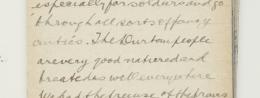 especially for soldiers and go
through all sorts of fancy
antics. The Durban people
are very good natured and
treated us well everywhere
We had the free use of the trams